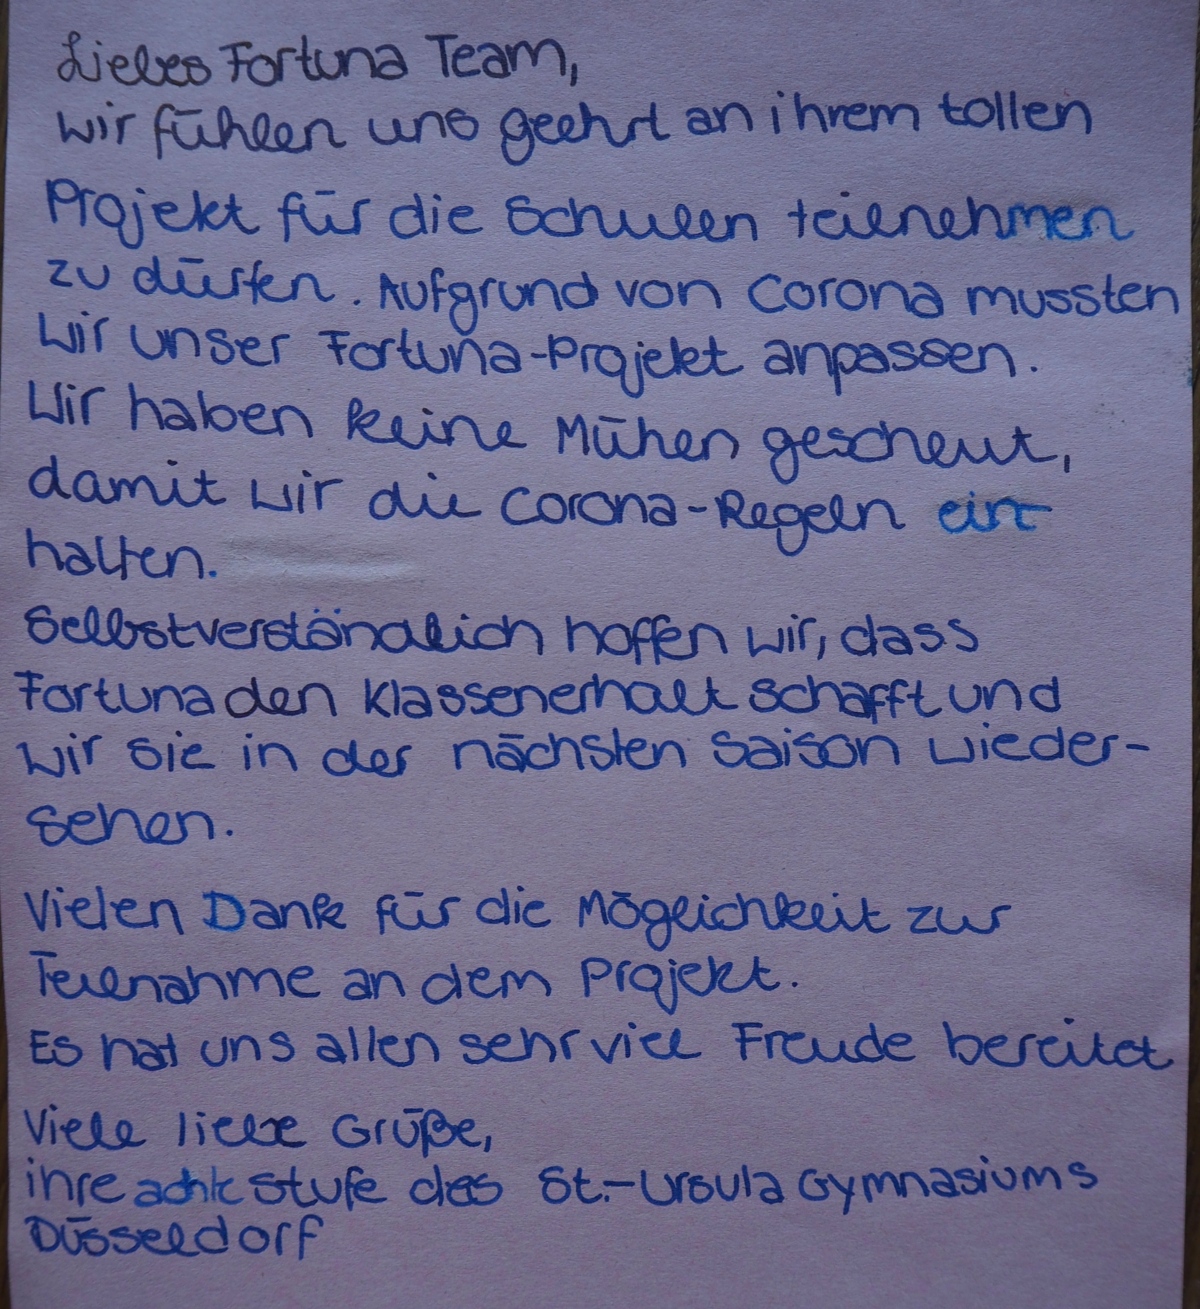 Liebes Fortuna Team,
wir fühlen uns geehrt an ihrem tollen
Projekt für die Schulen teilnehmen
zu dürfen. Aufgrund von Corona mussten
wir unser Fortuna-Projekt anpassen.
Wir haben keine Mühen gescheut,
damit wir die Corona-Regeln ein-
halten.
Selbstverständlich hoffen wir, dass
Fortuna den Klassenerhalt schafft und
wir sie in der nächsten Saison wieder-
sehen.
Vielen Dank für die Möglichkeit zur
Teilnahme an dem Projekt.
Es hat uns allen sehr viel Freude bereitet
Viele liebe Grüße,
ihre achte Stufe des St.-Ursula Gymnasiums
Düsseldorf